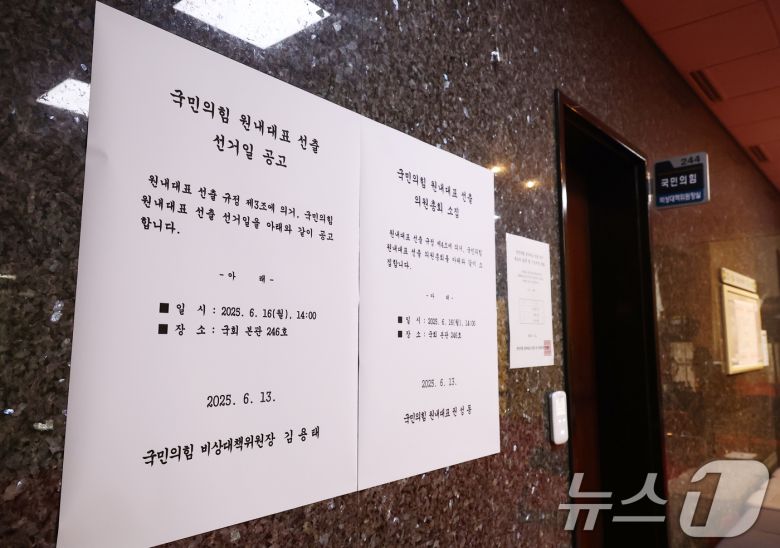 국민의힘 원내대표 선출
선거일 공고
원내대표 선출 규정 제3조에 의거, 국민의힘
원내대표 선출 선거일을 아래와 같이 공고
합니다.
- 아 래 -
■ 일 시 : 2025. 6. 16(월), 14:00
■ 장 소 : 국회 본관 246호
2025. 6. 13.
국민의힘 비상대책위원장 김 용 태
국민의힘 원내대표 선출
의원총회 소집
원내대표 선출 규정 제4조에 의거, 국민의힘
원내대표 선출 의원총회를 아래와 같이 소
집합니다.
- 아 래 -
■ 일 시 : 2025. 6. 16(월), 14:00
■ 장 소 : 국회 본관 246호
2025. 6. 13.
국민의힘 원내대표 권 성 동
244
국민의힘
비상대책위원장실
뉴스1